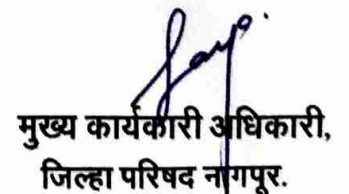 मुख्य कार्यकारी अधिकारी,
जिल्हा परिषद नागपूर.